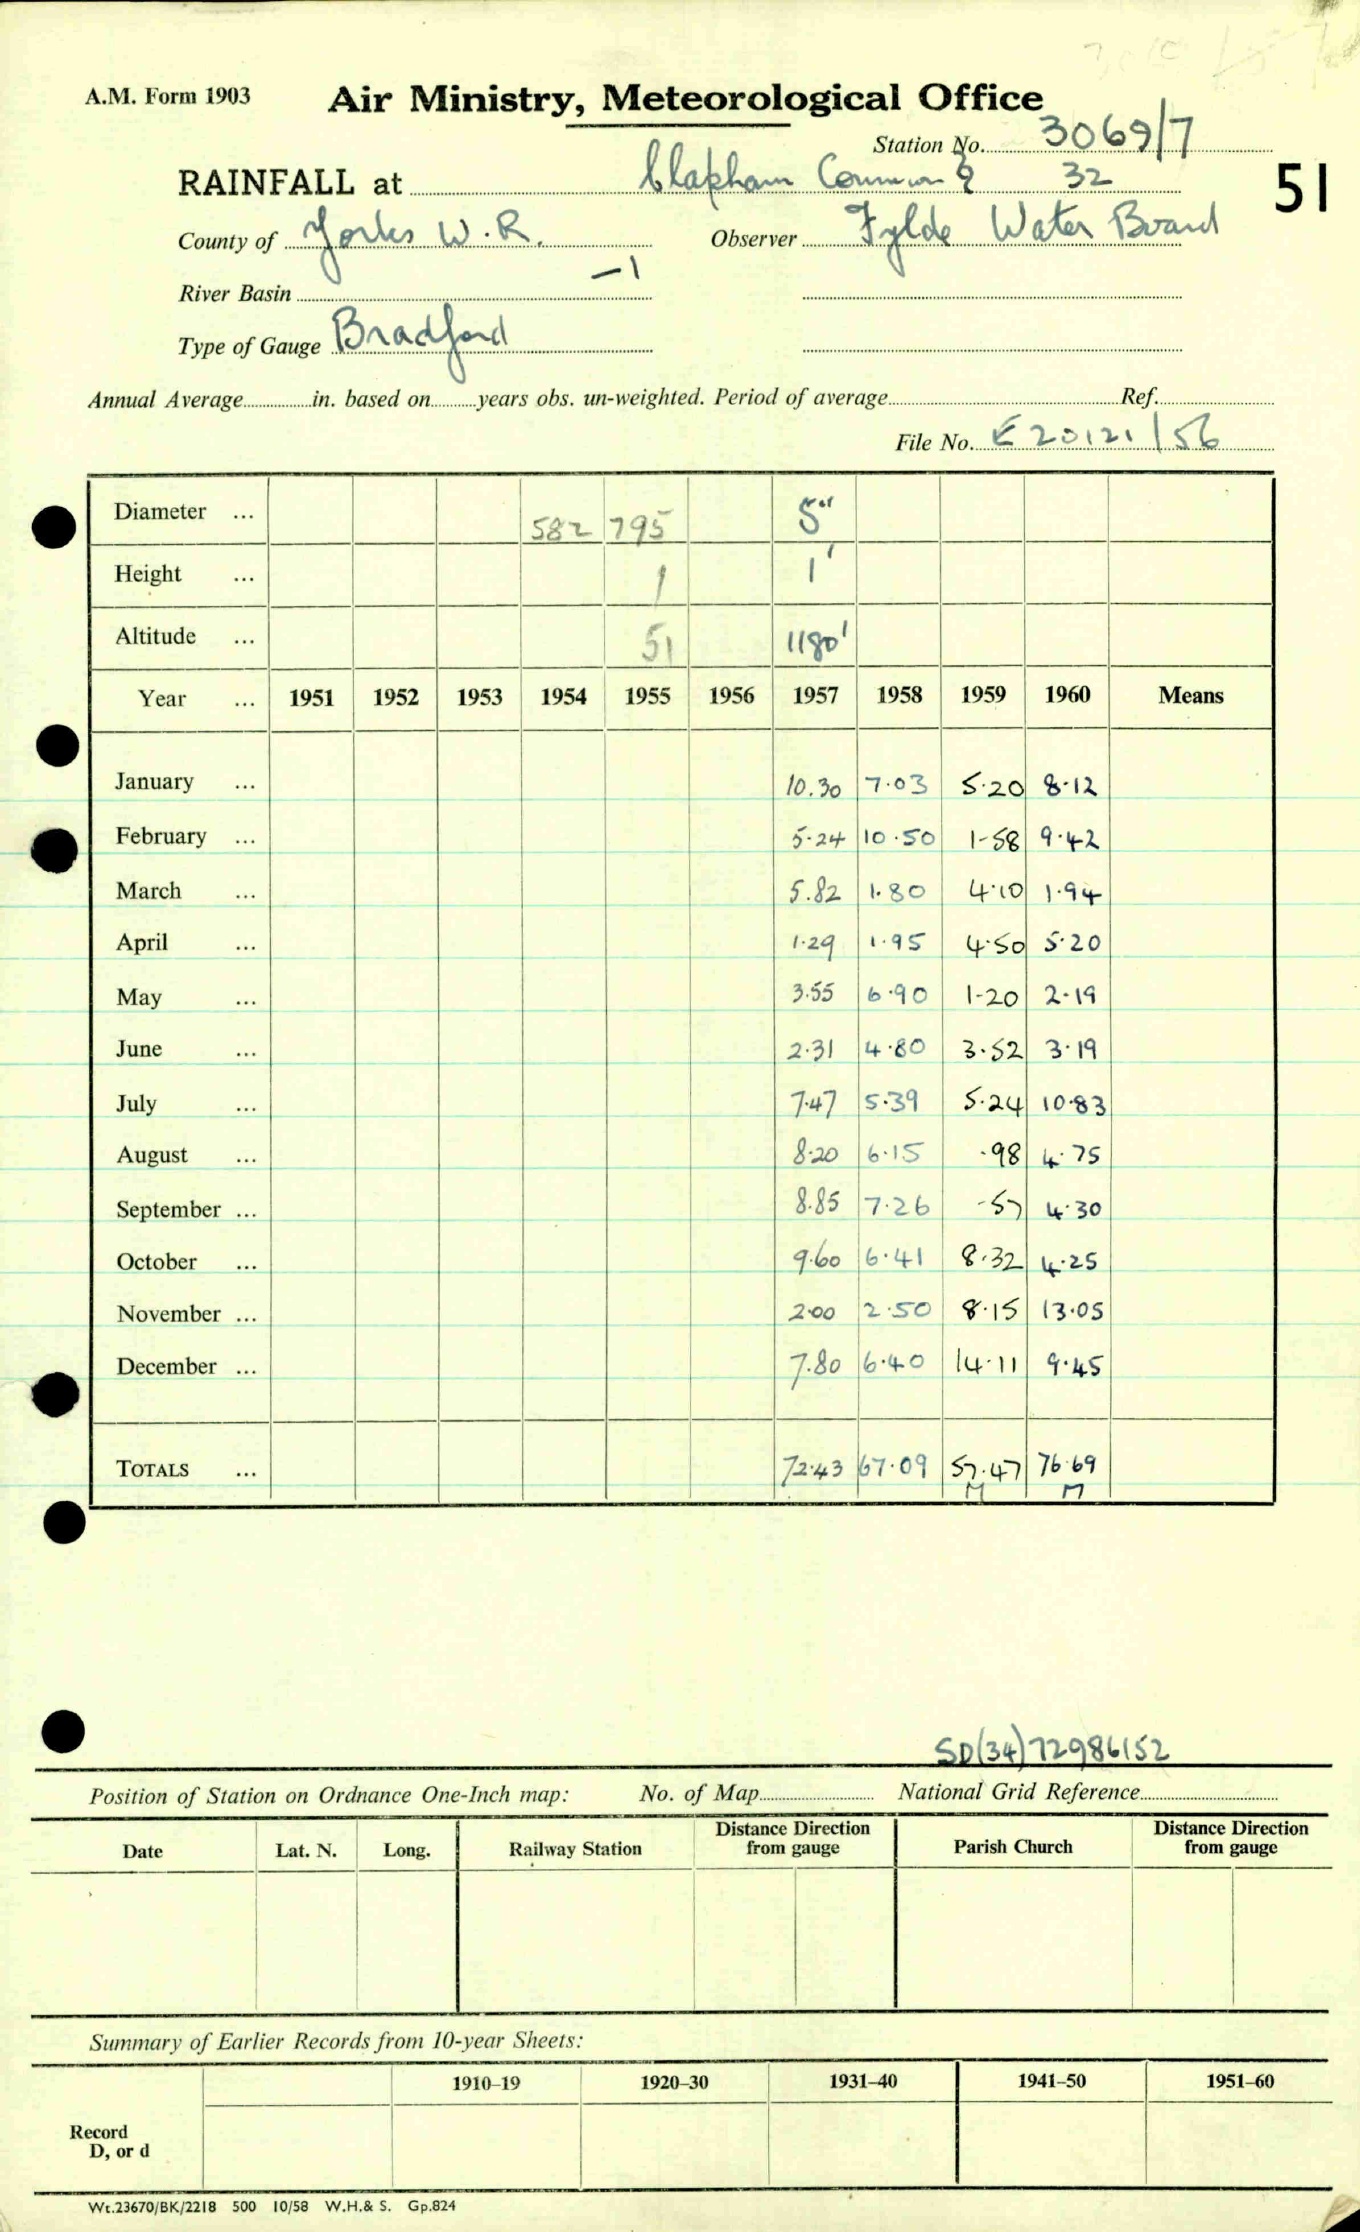 A.M. Form 1903
Air Ministry, Meteorological Office
Station No. 3069/7
RAINFALL at Clapham Common 32
51
County of Yorks W.R. Observer Fylde Water Board
River Basin -1
Type of Gauge Bradford
Annual Average in. based on years obs. un-weighted. Period of average Ref.
File No. E20121/56
Diameter ... 582 795 5"
Height ... 1 1'
Altitude ... 51 1180'
Year ... 1951 1952 1953 1954 1955 1956 1957 1958 1959 1960 Means
January ... 10.30 7.03 5.20 8.12
February ... 5.24 10.50 1.58 9.42
March ... 5.82 1.80 4.10 1.94
April ... 1.29 1.95 4.50 5.20
May ... 3.55 6.90 1.20 2.19
June ... 2.31 4.80 3.52 3.19
July ... 7.47 5.39 5.24 10.83
August ... 8.20 6.15 .98 4.75
September ... 8.85 7.26 .57 4.30
October ... 9.60 6.41 8.32 4.25
November ... 2.00 2.50 8.15 13.05
December ... 7.80 6.40 14.11 9.45
TOTALS ... 72.43 67.09 57.47 76.69
M M
SD(34)72986152
Position of Station on Ordnance One-Inch map: No. of Map National Grid Reference
Date Lat. N. Long. Railway Station Distance Direction from gauge Parish Church Distance Direction from gauge
Summary of Earlier Records from 10-year Sheets:
1910–19 1920–30 1931–40 1941–50 1951–60
Record
D, or d
Wt.23670/BK/2218 500 10/58 W.H.& S. Gp.824